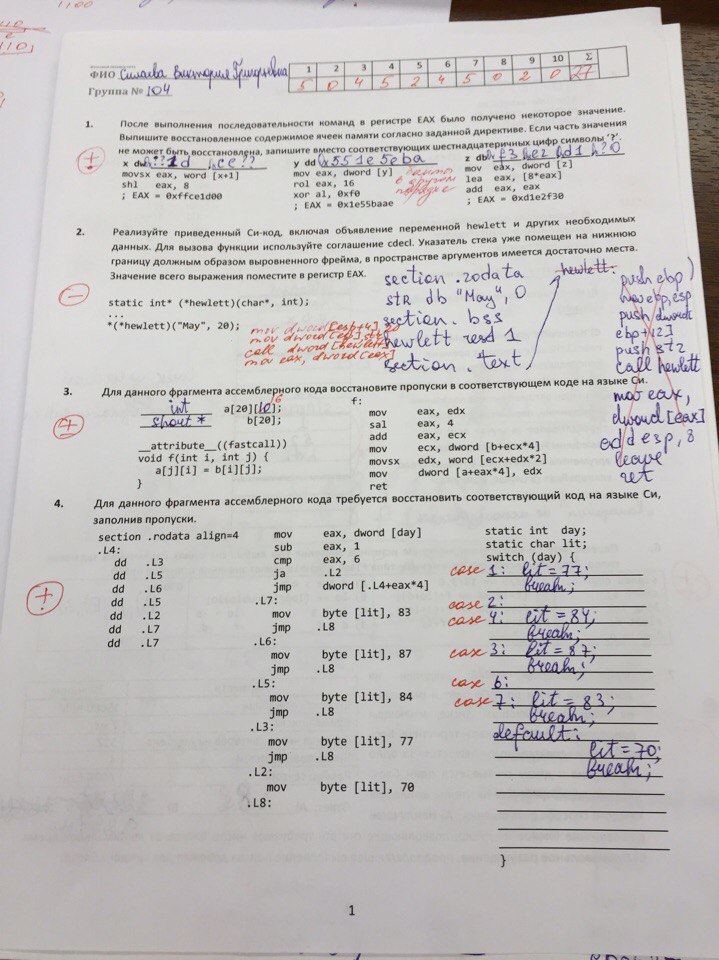 ФИО Силаева Виктория Григорьевна
Группа № 104
1 2 3 4 5 6 7 8 9 10 Σ
5 0 4 5 2 4 5 0 2 0 27
1. После выполнения последовательности команд в регистре EAX было получено некоторое значение.
Выпишите восстановленное содержимое ячеек памяти согласно заданной директиве. Если часть значения
не может быть восстановлена, запишите вместо соответствующих шестнадцатеричных цифр символы '?'.
x dw
y dd 0x551e5eba
z db
movsx eax, word [x+1]
shl eax, 8
; EAX = 0xffce1d00
mov eax, dword [y]
rol eax, 16
xor al, 0xf0
; EAX = 0x1e55baae
mov eax, dword [z]
lea eax, [8*eax]
add eax, eax
; EAX = 0xd1e2f30
байты
в другом
порядке
2. Реализуйте приведенный Си-код, включая объявление переменной hewlett и других необходимых
данных. Для вызова функции используйте соглашение cdecl. Указатель стека уже помещен на нижнюю
границу должным образом выровненного фрейма, в пространстве аргументов имеется достаточно места.
Значение всего выражения поместите в регистр EAX.
static int* (*hewlett)(char*, int);
...
*(hewlett)("May", 20);
mov dword[esp+4], 20
mov dword[esp], str
call dword[hewlett]
mov eax, dword[eax]
section .rodata
str db "May", 0
section .bss
hewlett resd 1
section .text
hewlett:
push ebp
mov ebp, esp
push dword[
ebp+12]
push str
call hewlett
mov eax,
dword[eax]
add esp, 8
leave
ret
3. Для данного фрагмента ассемблерного кода восстановите пропуски в соответствующем коде на языке Си.
int a[20][10];
16
short* b[20];
__attribute__((fastcall))
void f(int i, int j) {
a[j][i] = b[i][j];
}
f:
mov eax, edx
sal eax, 4
add eax, ecx
mov ecx, dword [b+ecx*4]
movsx edx, word [ecx+edx*2]
mov dword [a+eax*4], edx
ret
4. Для данного фрагмента ассемблерного кода требуется восстановить соответствующий код на языке Си,
заполнив пропуски.
section .rodata align=4
.L4:
dd .L3
dd .L5
dd .L6
dd .L5
dd .L2
dd .L7
dd .L7
mov eax, dword [day]
sub eax, 1
cmp eax, 6
ja .L2
jmp dword [.L4+eax*4]
.L7:
mov byte [lit], 83
jmp .L8
.L6:
mov byte [lit], 87
jmp .L8
.L5:
mov byte [lit], 84
jmp .L8
.L3:
mov byte [lit], 77
jmp .L8
.L2:
mov byte [lit], 70
.L8:
static int day;
static char lit;
switch (day) {
case 1: lit = 77;
break;
case 2:
case 4: lit = 84;
break;
case 3: lit = 87;
break;
case 6:
case 7: lit = 83;
break;
default:
lit = 70;
break;
}
1